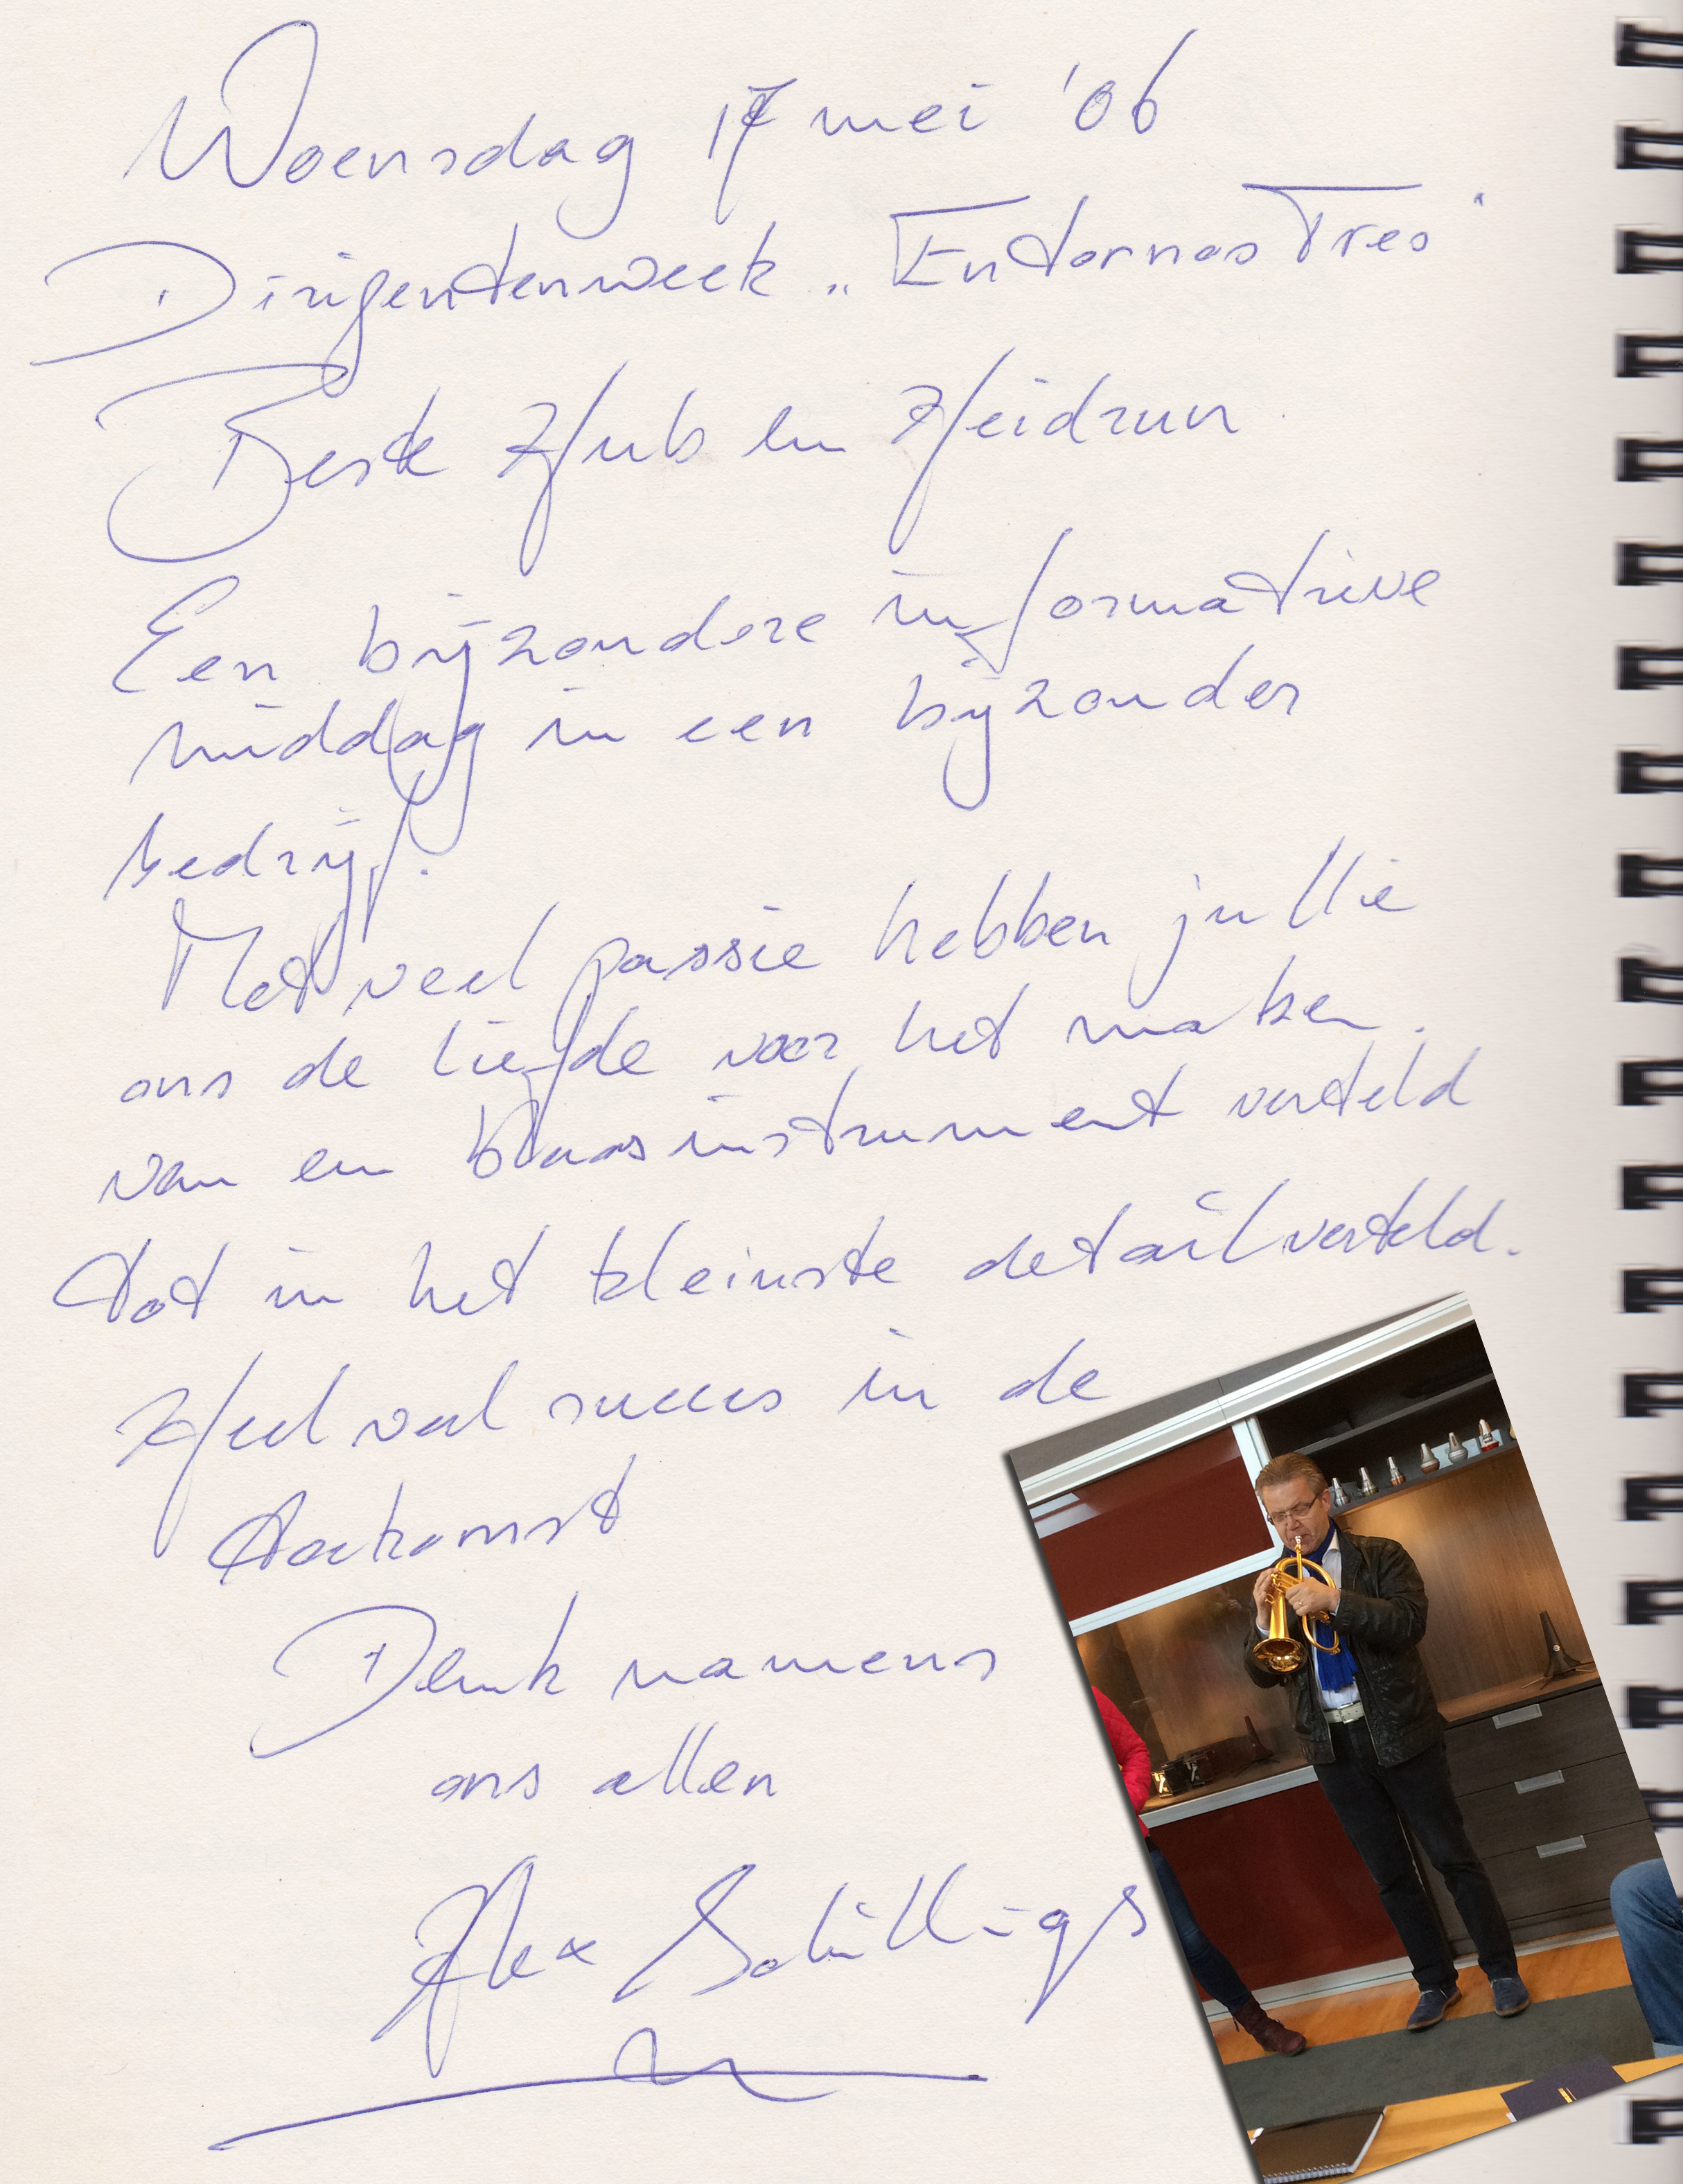 Woensdag 17 mei '06
Dirigentenweek „Entornos Tres"
Beste Hub en Heidrun
Een bijzondere informatieve
middag in een bijzonder
bedrijf.
Met veel passie hebben jullie
ons de liefde voor het maken
van een blaasinstrument verteld
tot in het kleinste detail verteld.
Heel veel succes in de
toekomst
Dank namens
ons allen
Alex Schillings